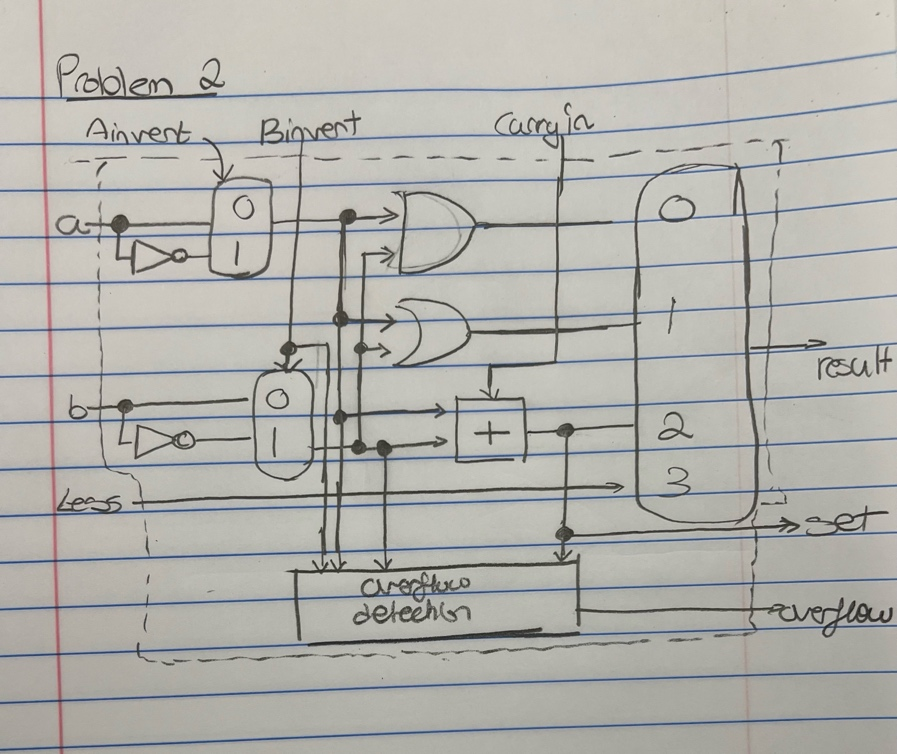 Problem 2
Ainvert Binvert Carryin
a 0
1
0
1
result
b 0
1 + 2
3
Less
set
overflow
detection overflow